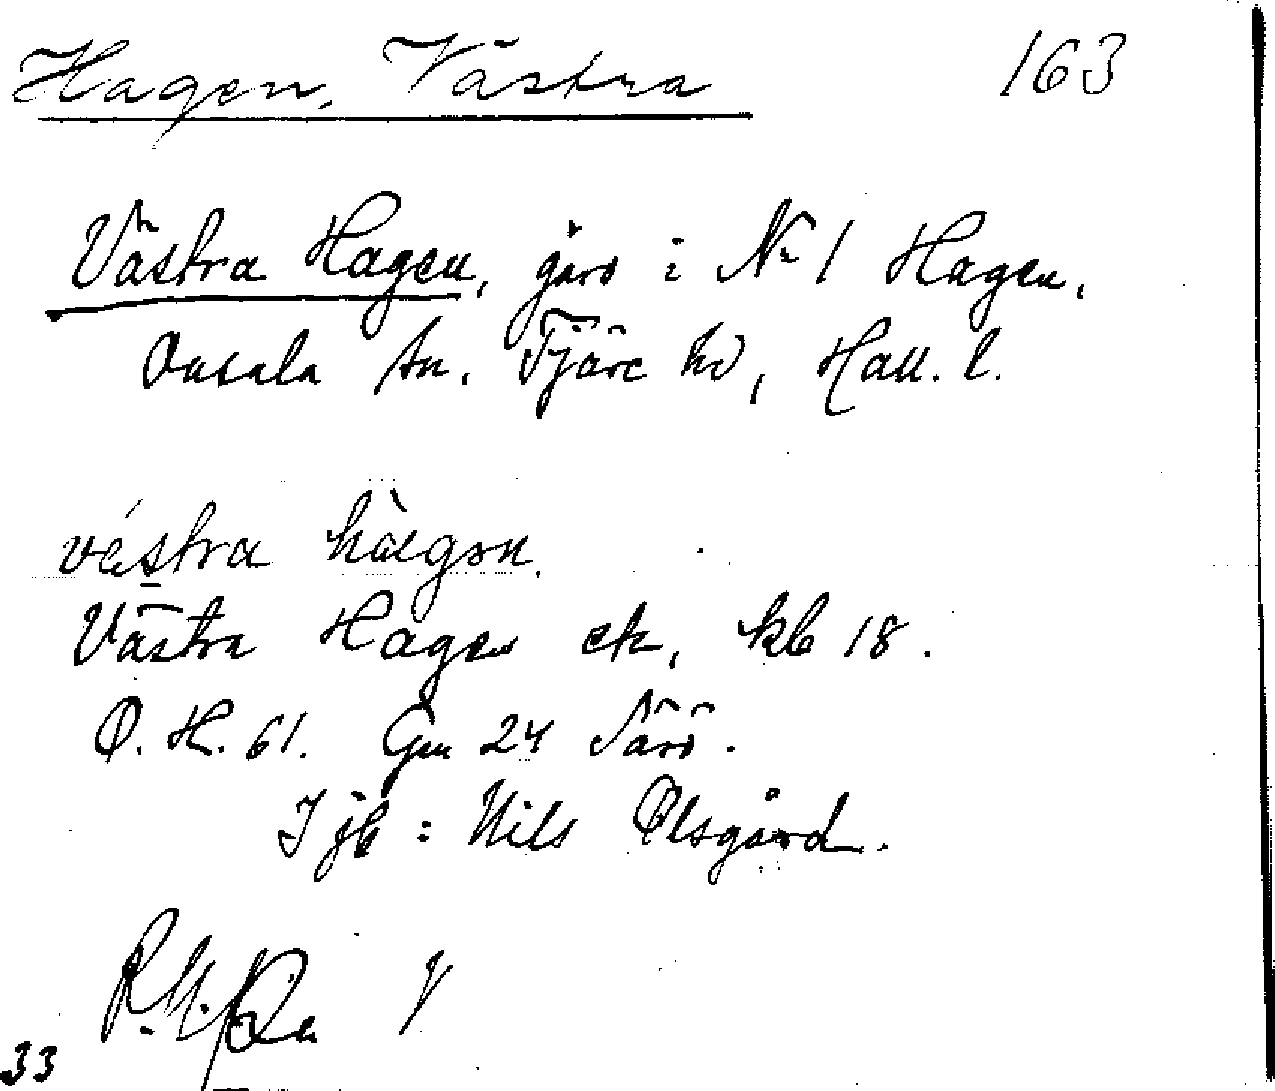 Hagen, Västra 163
Västra Hagen, gård i No 1 Hagen,
Onsala sn. Fjäre hd, Hall. l.
véstra hàgən.
Västra Hagen ek, kb 18.
O.H. 61. Gm 24 Särö.
I jb: Nils Olsgård.
33